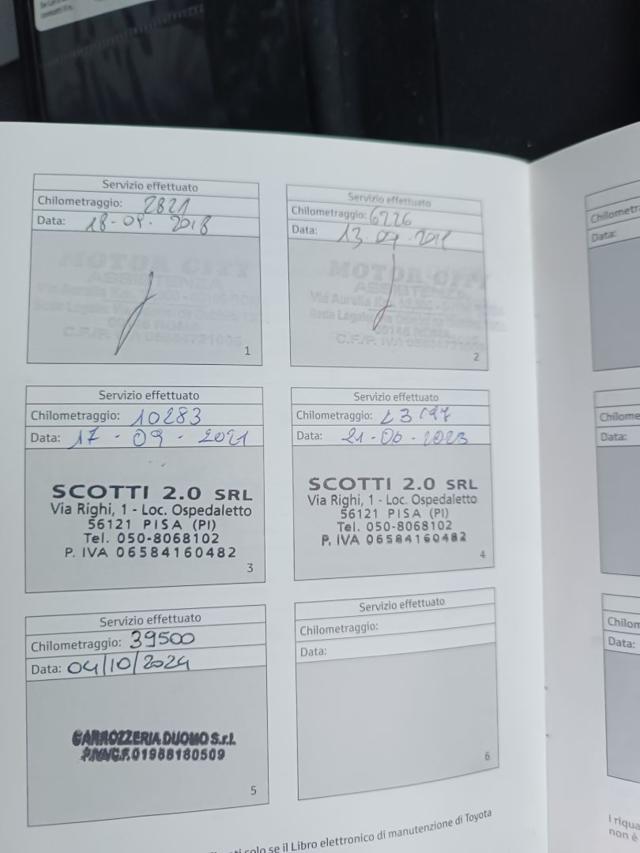 Servizio effettuato
Chilometraggio: 2821
Data: 18-09-2018
MOTOR CITY
ASSISTENZA
Via Aurelia
1
Servizio effettuato
Chilometraggio: 6226
Data: 13-09-
MOTOR CITY
ASSISTENZA
Via Aurelia
Sede Legale
00146 ROMA
C.F/P. IVA
2
Servizio effettuato
Chilometraggio: 10283
Data: 17-09-2021
SCOTTI 2.0 SRL
Via Righi, 1 - Loc. Ospedaletto
56121 PISA (PI)
Tel. 050-8068102
P. IVA 06584160482
3
Servizio effettuato
Chilometraggio:
Data: 21-06-2023
SCOTTI 2.0 SRL
Via Righi, 1 - Loc. Ospedaletto
56121 PISA (PI)
Tel. 050-8068102
P. IVA 06584160482
4
Servizio effettuato
Chilometraggio: 39500
Data: 04/10/2024
CARROZZERIA DUOMO S.r.l.
01988180509
5
Servizio effettuato
Chilometraggio:
Data:
6
solo se il Libro elettronico di manutenzione di Toyota
Data:
Data:
Data:
non è